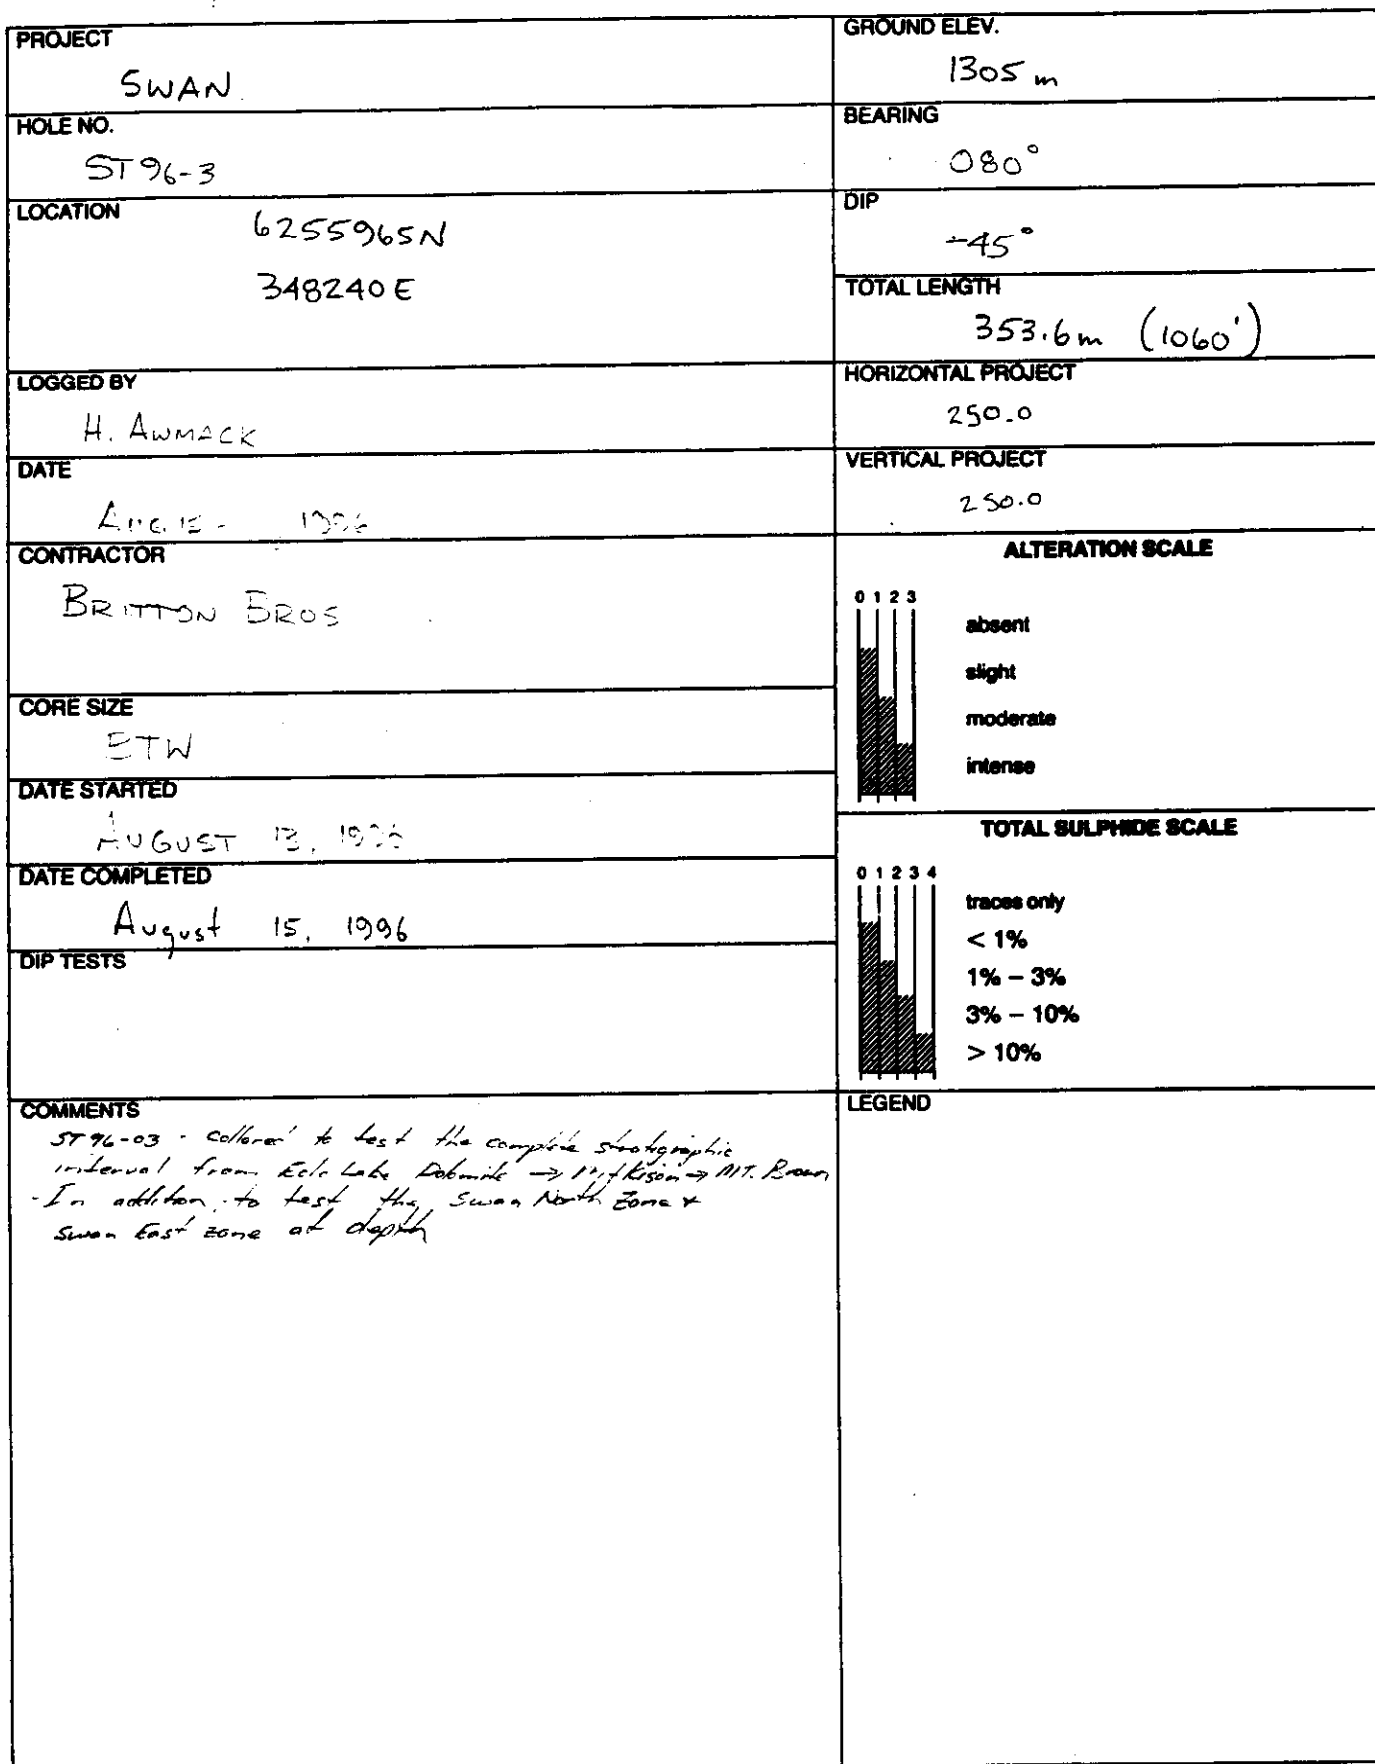 PROJECT
SWAN
HOLE NO.
ST 96-3
LOCATION
6255965N
348240E
LOGGED BY
H. AWMACK
DATE
AUG 15 - 1996
CONTRACTOR
BRITTON BROS
CORE SIZE
BTW
DATE STARTED
AUGUST 13, 1996
DATE COMPLETED
August 15, 1996
DIP TESTS
COMMENTS
ST96-03 - collared to test the complete stratigraphic
interval from Lake Dolomite → → MT. Brown
- In addition to test the Swan North Zone &
Swan East zone at depth
GROUND ELEV.
1305 m
BEARING
080°
DIP
-45°
TOTAL LENGTH
353.6m (1060')
HORIZONTAL PROJECT
250.0
VERTICAL PROJECT
250.0
ALTERATION SCALE
0 1 2 3
absent
slight
moderate
intense
TOTAL SULPHIDE SCALE
0 1 2 3 4
traces only
< 1%
1% – 3%
3% – 10%
> 10%
LEGEND